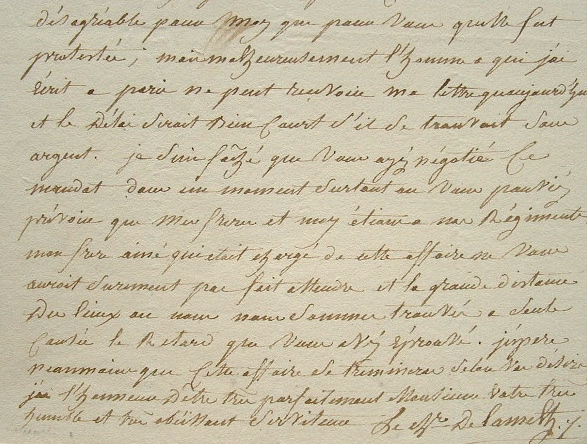 désagréable pour moy que pour vous qu'elle fut
protestée; mais malheureusement l'homme a qui j'ai
écrit a paris ne peut recevoir ma lettre qu'aujourd'hui
et le délai seroit bien court s'il se trouvoit sans
argent. je suis faché que vous ayés négotié ce
mandat dans un moment surtout ou vous pouviés
prévoir que mes freres et moy étions a nos Régiments
mon frere ainé qui etait chargé de cette affaire ne vous
auroit surement pas fait attendre et la grande distance
des lieux ou nous nous sommes trouvés a seule
causée le Retard que vous avés éprouvé. j'espere
neanmoins que cette affaire se terminera selon vos désirs
j'ai l'honneur d'etre tres parfaitement Monsieur votre tres
humble et tres obéissant serviteur Le ch.er De Lameth